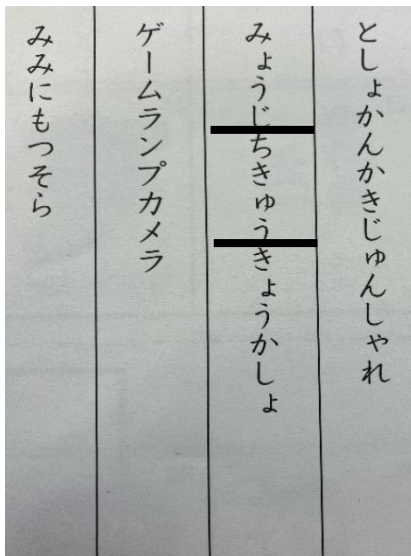 としょかんかきじゅんしゃれ
みょうじちきゅうきょうかしょ
ゲームランプカメラ
みみにもつそら